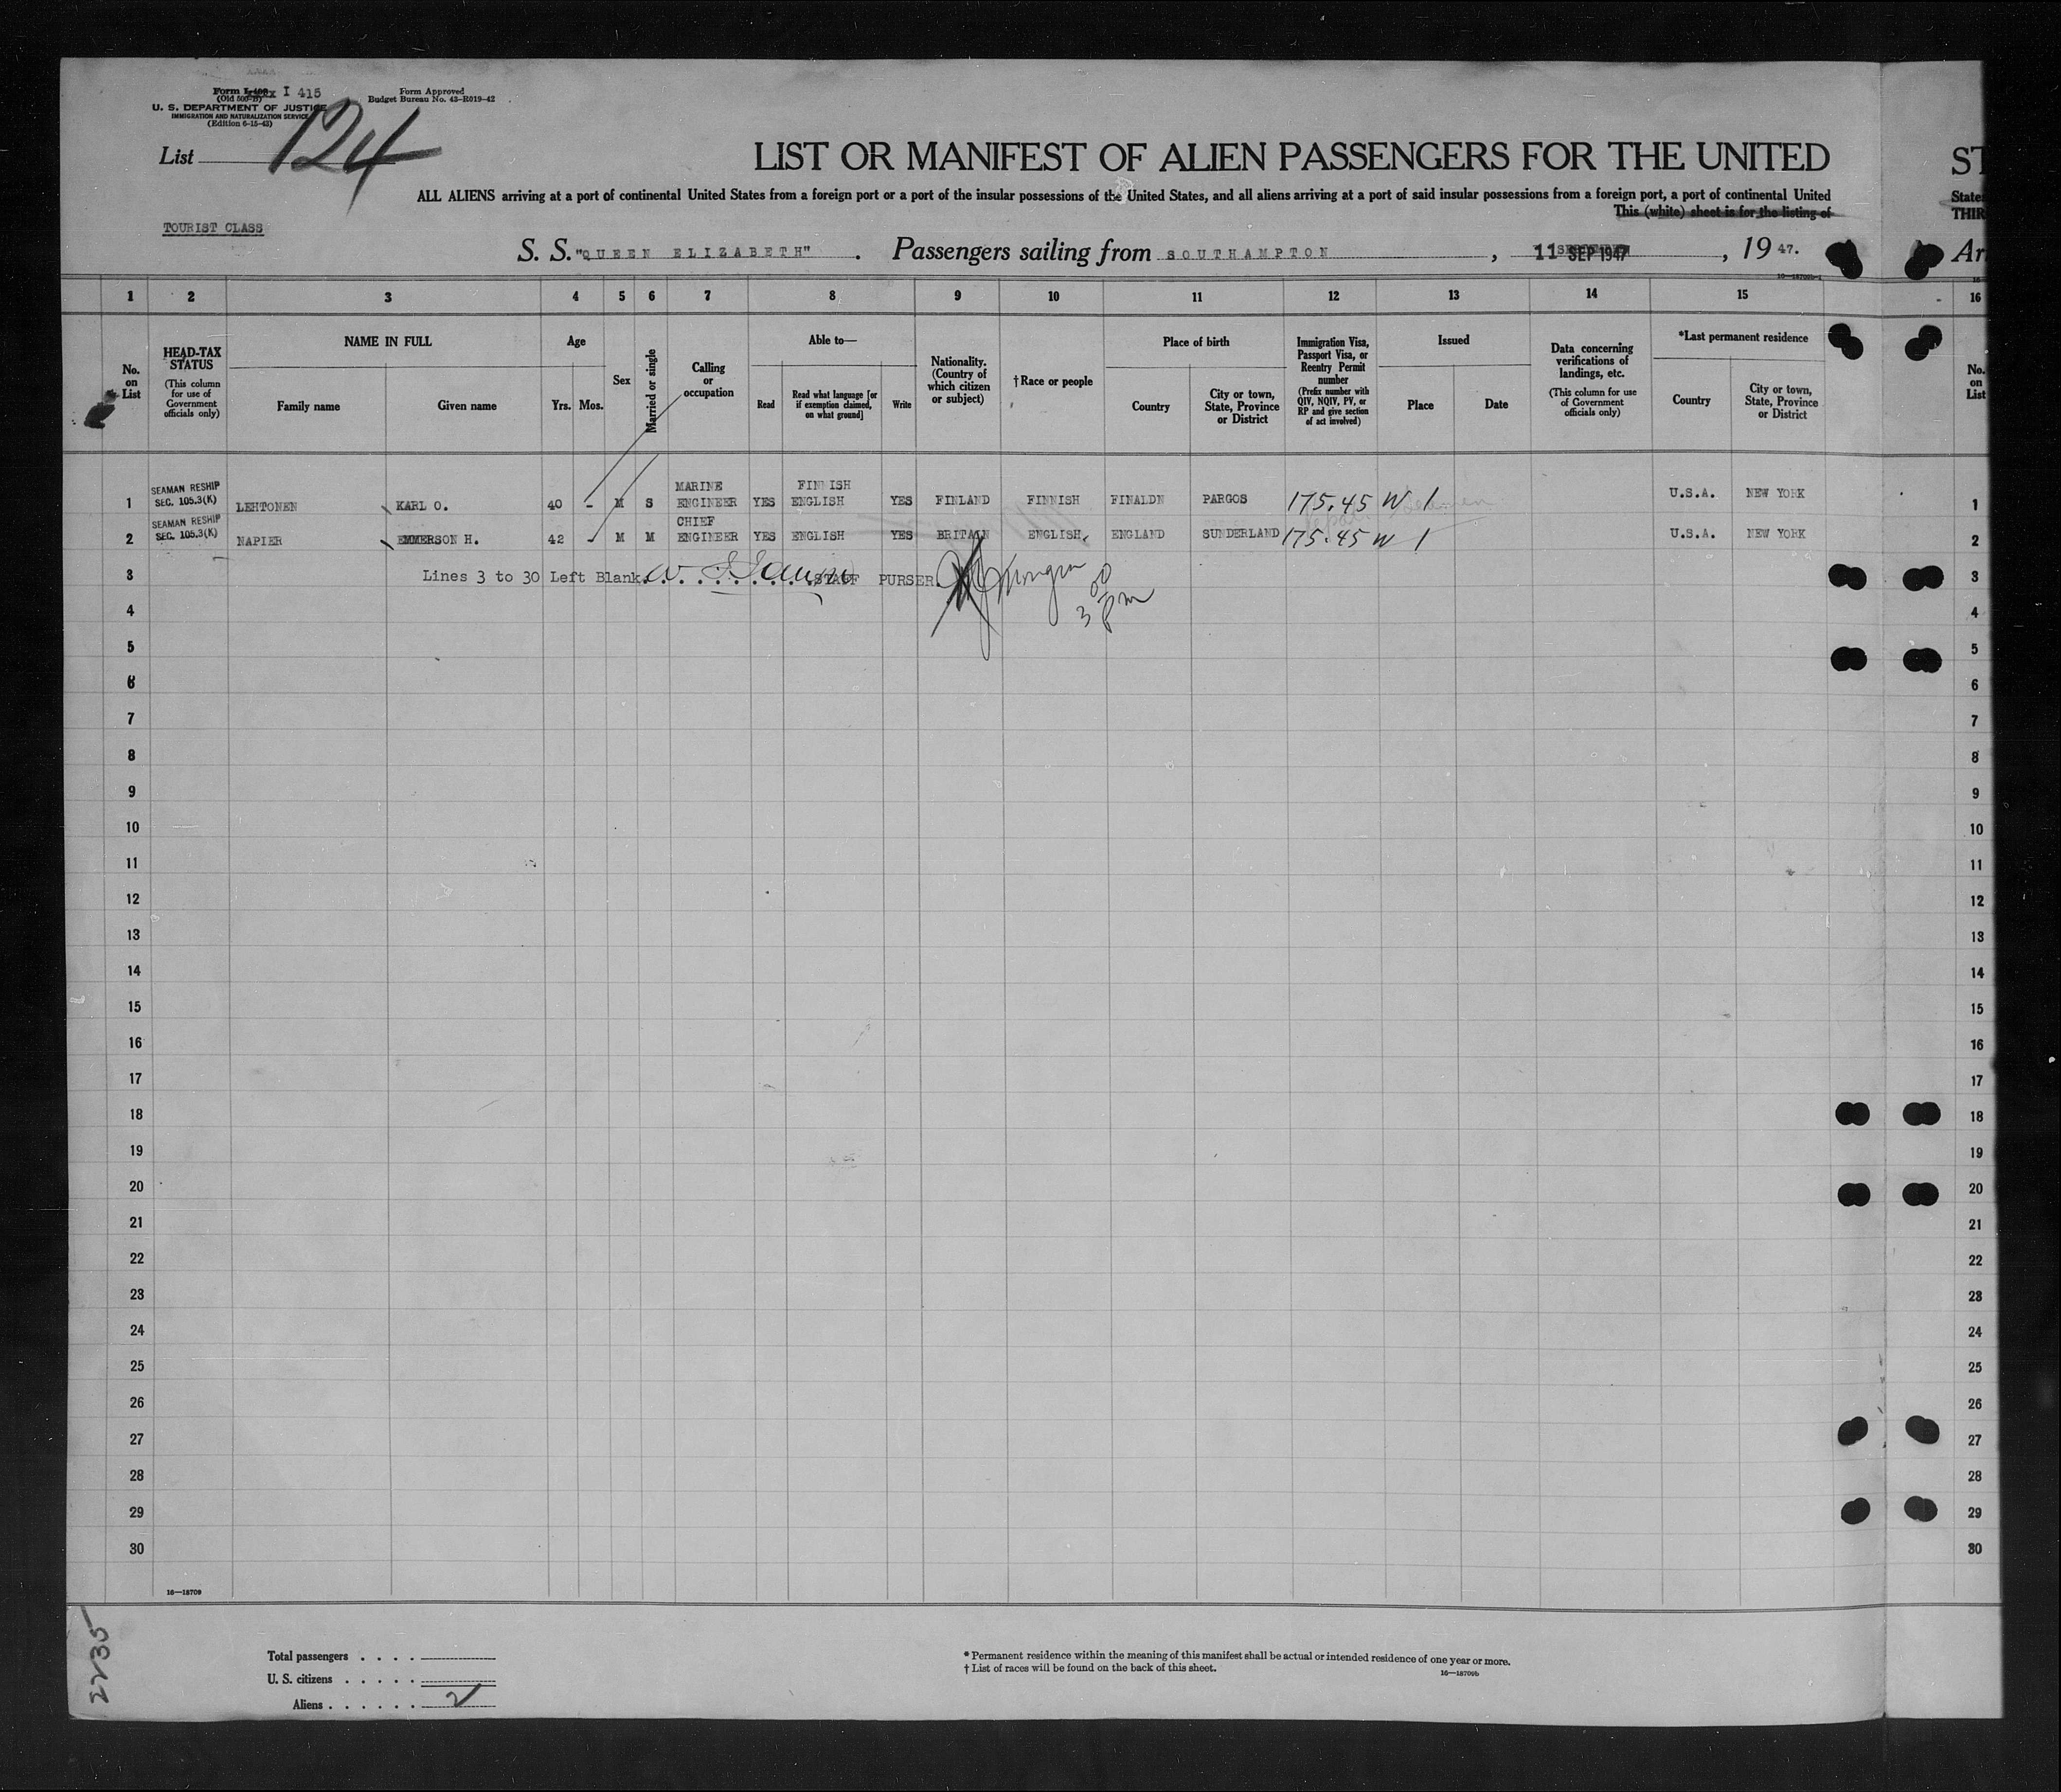 Form I 415
(Old 500-B)
U. S. DEPARTMENT OF JUSTICE
IMMIGRATION AND NATURALIZATION SERVICE
(Edition 6-15-43)
Form Approved
Budget Bureau No. 43-R019-42
List 124
LIST OR MANIFEST OF ALIEN PASSENGERS FOR THE UNITED ST
ALL ALIENS arriving at a port of continental United States from a foreign port or a port of the insular possessions of the United States, and all aliens arriving at a port of said insular possessions from a foreign port, a port of continental United States
This (white) sheet is for the listing of THIR
TOURIST CLASS
S. S. "QUEEN ELIZABETH". Passengers sailing from SOUTHAMPTON, 11 SEP 1947, 19 47. Arr
16—18709b-1
1 2 3 4 5 6 7 8 9 10 11 12 13 14 15 16
No. on List
HEAD-TAX STATUS
(This column for use of Government officials only)
NAME IN FULL
Family name
Given name
Age
Yrs. Mos.
Sex
Married or single
Calling or occupation
Able to—
Read
Read what language [or if exemption claimed, on what ground]
Write
Nationality. (Country of which citizen or subject)
†Race or people
Place of birth
Country
City or town, State, Province or District
Immigration Visa, Passport Visa, or Reentry Permit number
(Prefix number with QIV, NQIV, PV, or RP and give section of act involved)
Issued
Place
Date
Data concerning verifications of landings, etc.
(This column for use of Government officials only)
*Last permanent residence
Country
City or town, State, Province or District
No. on List
1 SEAMAN RESHIP SEC. 105.3(K) LEHTONEN KARL O. 40 - M S MARINE ENGINEER YES FINNISH ENGLISH YES FINLAND FINNISH FINALDN PARGOS 175.45 W 1 U.S.A. NEW YORK 1
2 SEAMAN RESHIP SEC. 105.3(K) NAPIER EMMERSON H. 42 - M M CHIEF ENGINEER YES ENGLISH YES BRITAIN ENGLISH. ENGLAND SUNDERLAND 175.45 W 1 U.S.A. NEW YORK 2
3 Lines 3 to 30 Left Blank. STAFF PURSER. 3
4 4
5 5
6 6
7 7
8 8
9 9
10 10
11 11
12 12
13 13
14 14
15 15
16 16
17 17
18 18
19 19
20 20
21 21
22 22
23 23
24 24
25 25
26 26
27 27
28 28
29 29
30 30
16—18709
2235
Total passengers . . . .
U. S. citizens . . . . .
Aliens . . . . . . 2
* Permanent residence within the meaning of this manifest shall be actual or intended residence of one year or more.
† List of races will be found on the back of this sheet.
16—18709b